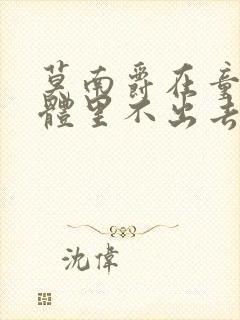 莫南爵在童
體里不出去
沈偉